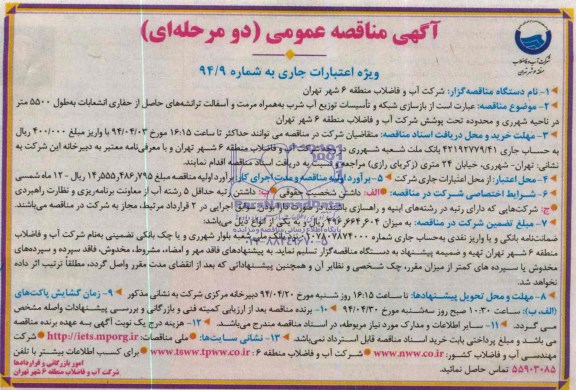 آگهی مناقصه عمومی (دو مرحله‌ای)
ویژه اعتبارات جاری به شماره ۹۴/۹
شرکت آب و فاضلاب
منطقه ۶ شهر تهران
۱- نام دستگاه مناقصه‌گزار: شرکت آب و فاضلاب منطقه ۶ شهر تهران
۲- موضوع مناقصه: عبارت است از بازسازی شبکه و تأسیسات توزیع آب شرب به‌همراه مرمت و آسفالت ترانشه‌های حاصل از حفاری انشعابات به‌طول ۵۵۰۰ متر
در ناحیه شهرری و محدوده تحت پوشش شرکت آب و فاضلاب منطقه ۶ شهر تهران
۳- مهلت خرید و محل دریافت اسناد مناقصه: متقاضیان شرکت در مناقصه می توانند حداکثر تا ساعت ۱۶:۱۵ مورخ ۹۴/۰۴/۰۳ با واریز مبلغ ۴۰۰/۰۰۰ ریال
به حساب جاری ۴۲۱۹۲۷۷۹/۴۱ بانک ملت شعبه شهرری در وجه شرکت آب و فاضلاب منطقه ۶ شهر تهران و با معرفی‌نامه معتبر به دبیرخانه این شرکت به
نشانی: تهران- شهرری، خیابان ۲۴ متری (زکریای رازی) مراجعه و نسبت به دریافت اسناد مناقصه اقدام نمایند.
۴- محل اعتبار: از محل اعتبارات جاری شرکت ۵- برآورد اولیه مناقصه و مدت اجرای کار: برآورد اولیه مناقصه مبلغ ۱۴,۵۵۵,۴۸۶,۷۹۵ ریال - ۱۲ ماه شمسی
۶- شرایط اختصاصی شرکت در مناقصه: الف: داشتن شخصیت حقوقی ب: داشتن رتبه حداقل ۵ رشته آب از معاونت برنامه‌ریزی و نظارت راهبردی
ج: شرکت‌هایی که دارای رتبه در رشته‌های ابنیه و راهسازی باشند در صورت دارا بودن سوابق اجرایی در ۲ قرارداد مرتبط، مجاز به شرکت در مناقصه می‌باشند.
۷- مبلغ تضمین شرکت در مناقصه: به میزان ۴۹۶,۶۶۴,۶۰۴ ریال و به یکی از انواع ذیل می‌باشد:
ضمانت‌نامه بانکی و یا واریز نقدی به‌حساب جاری شماره بانک ملی شعبه بلوار شهرری و یا چک بانکی تضمینی به‌نام شرکت آب و فاضلاب
منطقه ۶ شهر تهران تهیه و ضمیمه پیشنهاد به دستگاه مناقصه‌گزار تسلیم نماید. به پیشنهادهای فاقد مهر و امضاء، مشروط، مخدوش، فاقد سپرده و سپرده‌های
مخدوش یا سپرده های کمتر از میزان مقرر، چک شخصی و نظایر آن و همچنین پیشنهاداتی که بعد از انقضای مدت مقرر واصل گردد، مطلقاً ترتیب اثر داده
نخواهد شد.
۸- مهلت و محل تحویل پیشنهادها: تا ساعت ۱۶:۱۵ روز شنبه مورخ ۹۴/۰۴/۲۰ دبیرخانه مرکزی شرکت به نشانی مذکور ۹- زمان گشایش پاکت‌های
(الف، ب): ساعت ۱۰:۳۰ صبح روز سه‌شنبه مورخ ۹۴/۰۴/۳۰ ۱۰- برنده مناقصه بعد از ارزیابی کمیته فنی و بازرگانی و بررسی پیشنهادات واصله مشخص
می گردد. ۱۱- سایر اطلاعات و مدارک مورد نیاز مربوطه، در اسناد مناقصه مندرج می‌باشد. ۱۲- هزینه درج یک نوبت آگهی به عهده برنده مناقصه
می باشد و مبلغ پرداختی بابت خرید اسناد مناقصه قابل استرداد نمی‌باشد. ۱۳- نشانی سایت‌ها: ملی مناقصات: http://iets.mporg.ir شرکت
مهندسی آب و فاضلاب کشور: www.nww.co.ir شرکت آب و فاضلاب منطقه ۶: www.tsww.tpww.co.ir برای کسب اطلاعات بیشتر با تلفن
۵۵۹۰۳۰۸۵ تماس حاصل نمائید.
امور بازرگانی و قراردادها
شرکت آب و فاضلاب منطقه ۶ شهر تهران